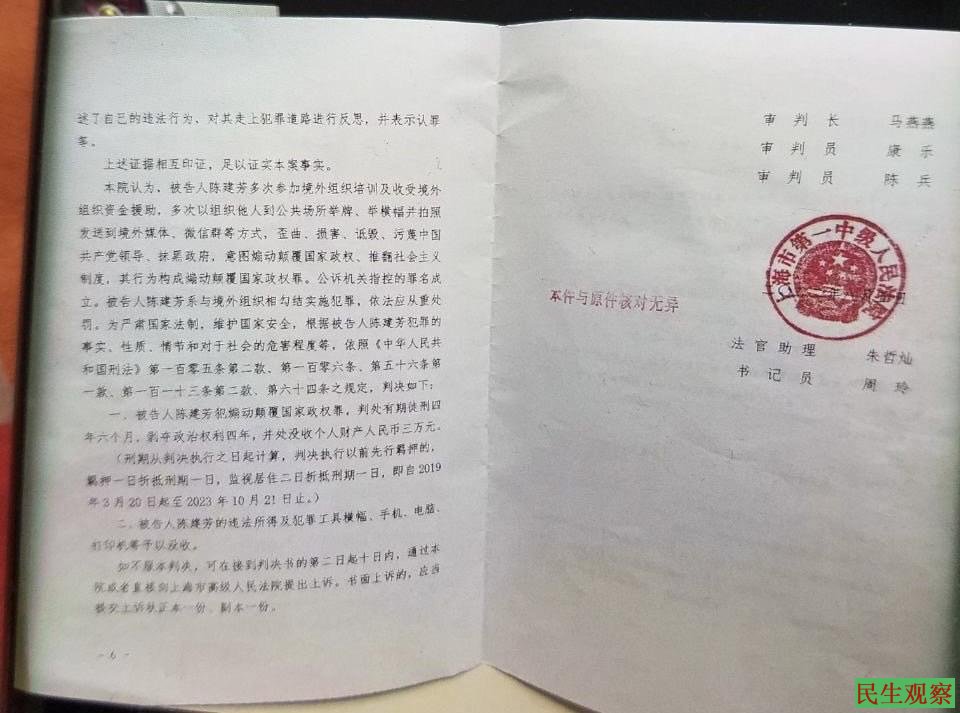 述了自己的违法行为、对其走上犯罪道路进行反思，并表示认罪
等。
上述证据相互印证，足以证实本案事实。
本院认为，被告人陈建芳多次参加境外组织培训及收受境外
组织资金援助，多次以组织他人到公共场所举牌、举横幅并拍照
发送到境外媒体、微信群等方式，歪曲、损害、诋毁、污蔑中国
共产党领导、抹黑政府，意图煽动颠覆国家政权、推翻社会主义
制度，其行为构成煽动颠覆国家政权罪。公诉机关指控的罪名成
立。被告人陈建芳系与境外组织相勾结实施犯罪，依法应从重处
罚。为严肃国家法制，维护国家安全，根据被告人陈建芳犯罪的
事实、性质、情节和对于社会的危害程度等，依照《中华人民共
和国刑法》第一百零五条第二款、第一百零六条、第五十六条第
一款、第一百一十三条第二款、第六十四条之规定，判决如下：
一、被告人陈建芳犯煽动颠覆国家政权罪，判处有期徒刑四
年六个月，剥夺政治权利四年，并处没收个人财产人民币三万元。
（刑期从判决执行之日起计算，判决执行以前先行羁押的，
羁押一日折抵刑期一日，监视居住二日折抵刑期一日，即自2019
年3月20日起至2023年10月21日止。）
二、被告人陈建芳的违法所得及犯罪工具横幅、手机、电脑、
打印机等予以没收。
如不服本判决，可在接到判决书的第二日起十日内，通过本
院或者直接向上海市高级人民法院提出上诉。书面上诉的，应当
提交上诉状正本一份，副本一份。
- 6 -
审判长 马燕燕
审判员 康乐
审判员 陈兵
上海市第一中级人民法院
本件与原件核对无异
法官助理 朱哲灿
书记员 周玲
民生观察